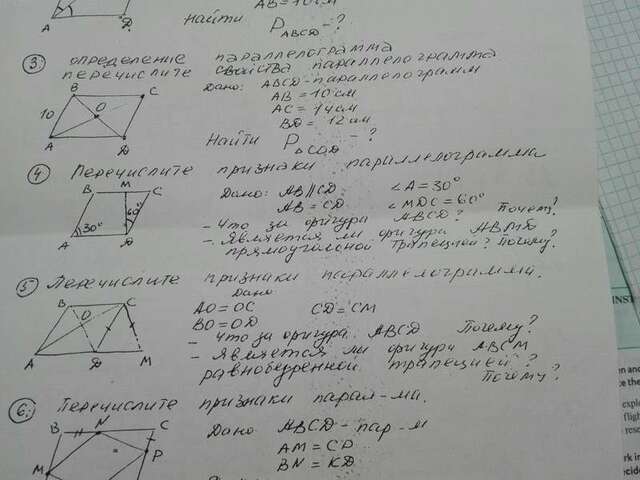 AB = 10 см
Найти P ABCD - ?
A D
3. определение параллелограмма
перечислите свойства параллелограмма
Дано: ABCD - параллелограмм
AB = 10 см
AC = 14 см
BD = 12 см
Найти P ΔCOD - ?
B C
10 O
A D
4 Перечислите признаки параллелограмма
Дано: AB || CD ∠A = 30°
AB = CD ∠MDC = 60°
- Что за фигура ABCD? Почему?
- Является ли фигура ABMD
прямоугольной трапецией? Почему?
B M C
60°
30°
A D
5 Перечислите признаки параллелограмма.
Дано
AO = OC CD = CM
BO = OD
- Что за фигура ABCD Почему?
- Является ли фигура ABCM
равнобедренной трапецией?
Почему?
B C
O
A D M
6. Перечислите признаки парал-ма.
Дано ABCD - пар-м
AM = CP
BN = KD
B N C
M P
INST